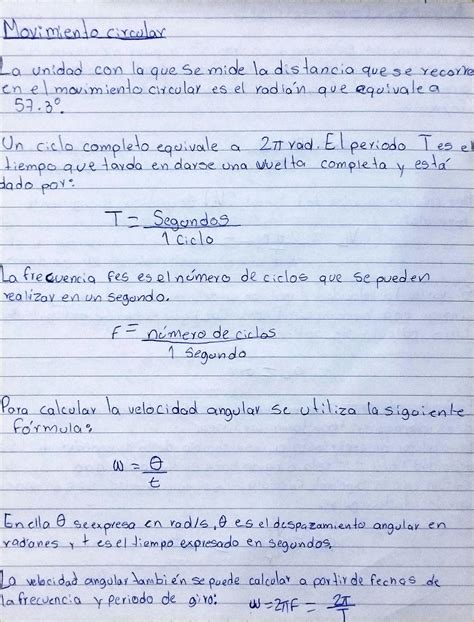 Movimiento circular
La unidad con la que se mide la distancia que se recorre
en el movimiento circular es el radián que equivale a
57.3º.
Un ciclo completo equivale a 2π rad. El periodo T es el
tiempo que tarda en darse una vuelta completa y está
dado por:
T = Segundos
1 ciclo
La frecuencia fes es el número de ciclos que se pueden
realizar en un segundo.
F = número de ciclos
1 Segundo
Para calcular la velocidad angular se utiliza la siguiente
fórmula:
ω = θ
t
En ella θ se expresa en rad/s, θ es el despazamiento angular en
radiones, t es el tiempo expresado en segundos.
La velocidad angular también se puede calcular a partir de fechas de
la frecuencia y periodo de giro: ω = 2πF = 2π
T